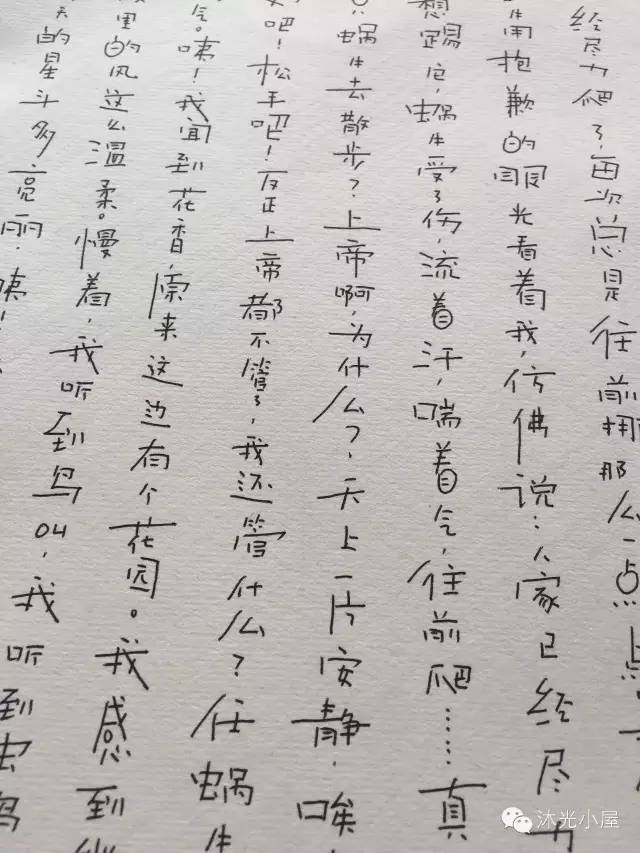 经尽力爬了,每次总是往前挪那么一点点。
用抱歉的眼光看着我,仿佛说:人家已经尽力
想踢它,蜗牛受了伤,流着汗,喘着气,往前爬……真
只蜗牛去散步?上帝啊,为什么?,天上一片安静.唉
吧!松手吧!反正上帝都不管了,我还管什么?任蜗牛
气。咦!我闻到花香,原来这边有个花园。我感到
里的风这么温柔。慢着,我听到鸟叫,我听到虫鸣
天的星斗多亮丽.咦!
沐光小屋